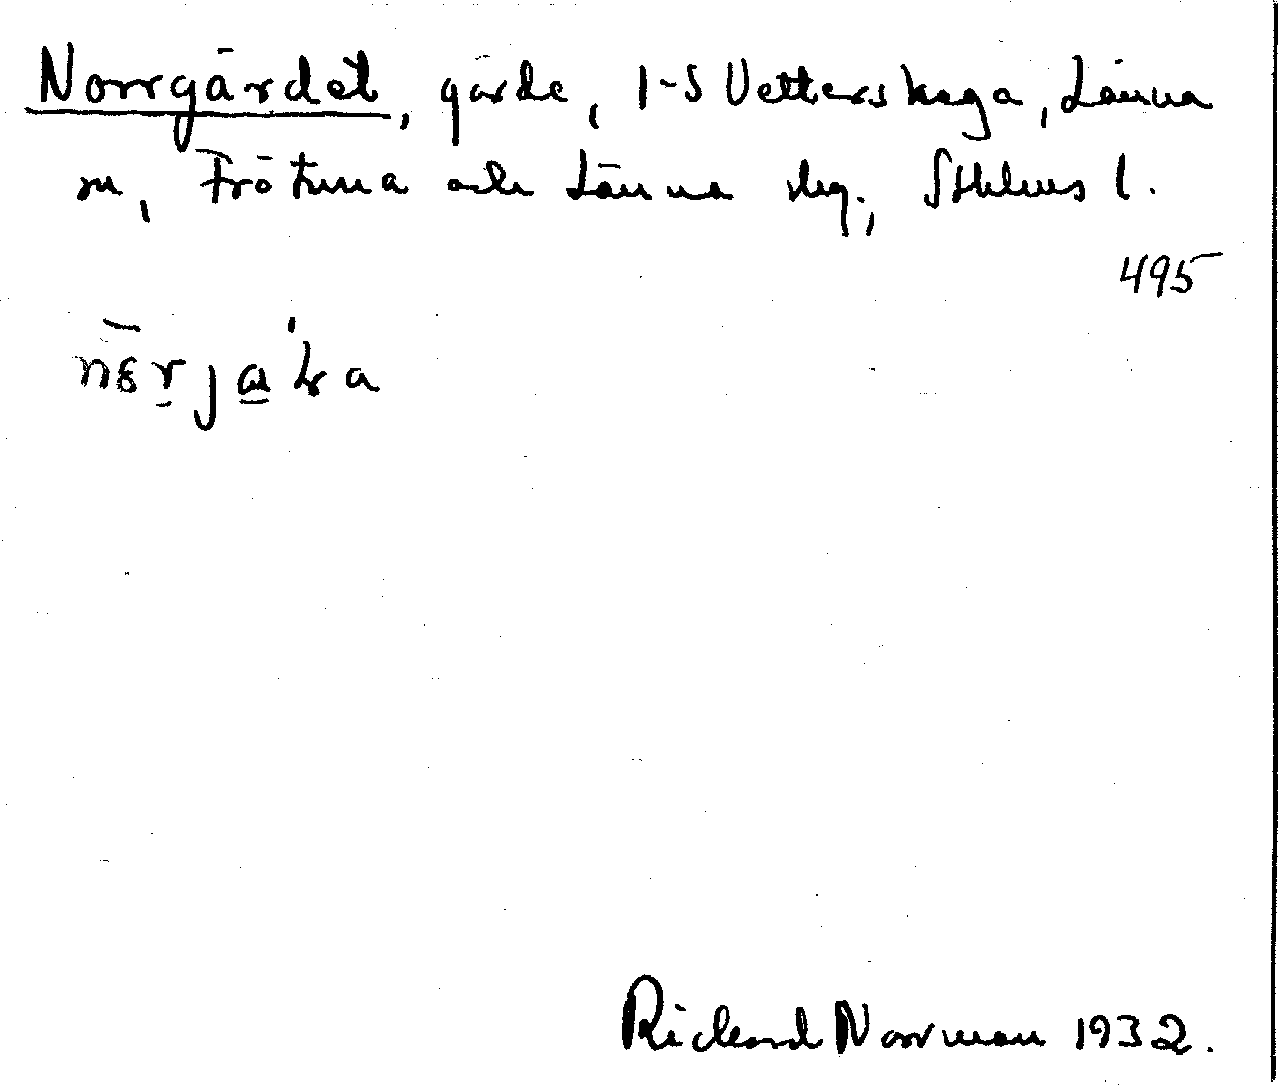 Norrgärdet, gärde, 1-5 Vetterskaga, Länna
sn, Frötuna och Länna skg., Sthlms l.
495
Rickard Norrman 1932.